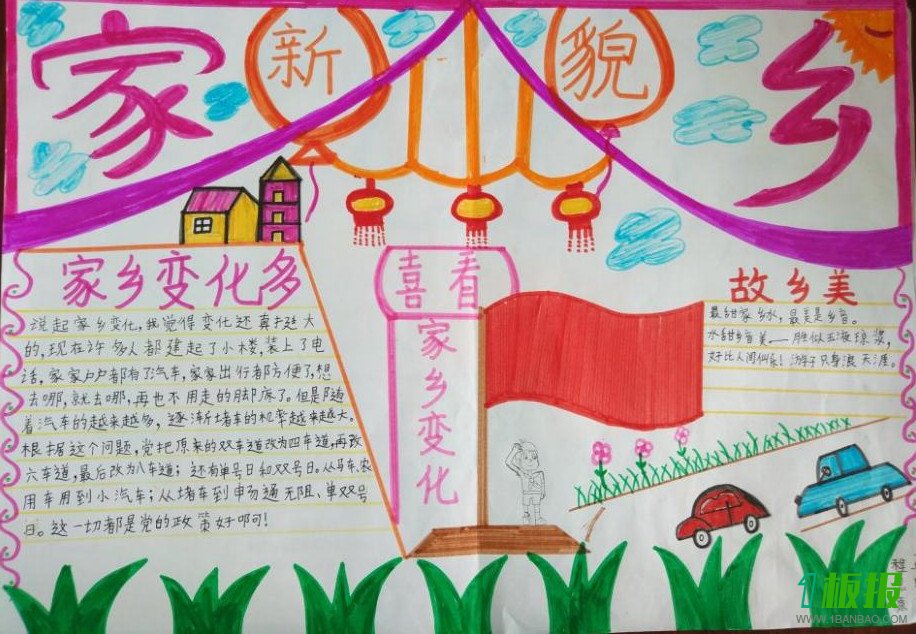 家新貌乡
家乡变化多
说起家乡变化，我觉得变化还真挺大
的，现在许多人都建起了小楼，装上了电
话，家家户户都有了汽车，家家出行都方便了，想
去哪，就去哪，再也不用走的脚麻了。但是随
着汽车的越来越多，逐渐堵车的机率越来越大。
根据这个问题，党把原来的双车道改为四车道，再改
六车道，最后改为八车道；还有单号日和双号日。从马车、农
用车用到小汽车；从堵车到申畅通无阻、单双号
日。这一切都是党的政策好啊可！
喜看
家乡变化
故乡美
最甜家乡水，最美是乡音。
水甜乡音美——胜似玉液琼浆，
好比人间仙泉！游子只身浪天涯。
程
板报
WWW.1BANBAO.COM